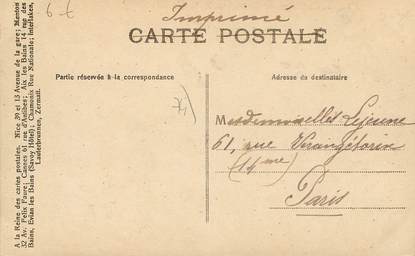 6 €
Imprimé
CARTE POSTALE
Partie réservée à la correspondance
Adresse du destinataire
74)
Mesdemoiselles Lejeune
61, rue Vercingétorix
(14me)
Paris
A la Reine des cartes postales. Nice 39 et 13 Avenue de la gare; Menton
32 Av. Felix Faure; Cannes 61 rue d'Antibes; Aix les Bains 14 rue des
Bains, Evian les Bains (Savoy Hôtel), Chamonix Rue Nationale; Interlaken,
Lauterbrunnen, Zermatt.